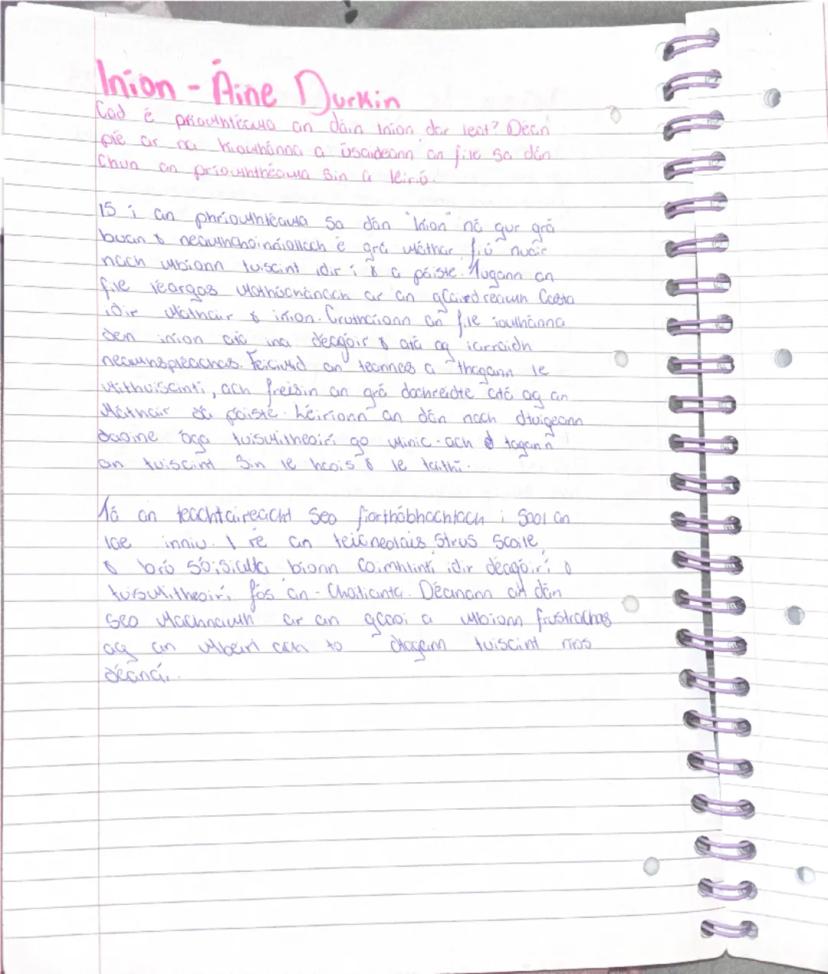 Iníon - Áine Durkin
Cad é príomhthéama an dáin Iníon dar leat? Déan
plé ar na híomhánna a úsáideann an file sa dán
chun an príomhthéama sin a léiriú.
Is í an phríomhtéama sa dán "Iníon" ná gur grá
buan & neamhchoinníollach é grá máthar, fiú nuair
nach mbíonn tuiscint idir í & a páiste. Tugann an
file léargas macánach ar an gcaidreamh casta
idir máthair & iníon. Cruthaíonn an file íomhánna
den iníon atá ina déagóir & atá ag iarraidh
neamhspleáchas. Feicimid an teannas a thagann le
míthuiscintí, ach freisin an grá dochreidte atá ag an
máthair dá páiste. Léiríonn an dán nach dtuigeann
daoine óga tuismitheoirí go minic - ach tagann
an tuiscint sin le haois & le taithí.
Tá an teachtaireacht seo fíorthábhachtach i saol an
lae inniu. I ré an teicneolais, strus scoile
& brú sóisialta bíonn coimhlintí idir déagóirí &
tuismitheoirí fós an-choitianta. Déanann an dán
seo machnamh ar an gcaoi a mbíonn frustrachas
ag an mbeirt ach go dtagann tuiscint níos
déanaí.